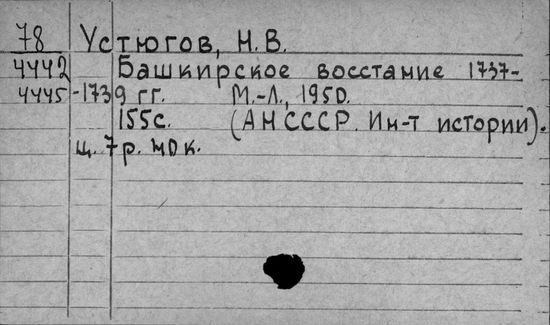 78 Устюгов, Н.В.
4442 Башкирское восстание 1737-
4445 -1739 гг. М.-Л., 1950.
155с. (АН СССР. Ин-т истории).
ц. 7 р. 40 к.